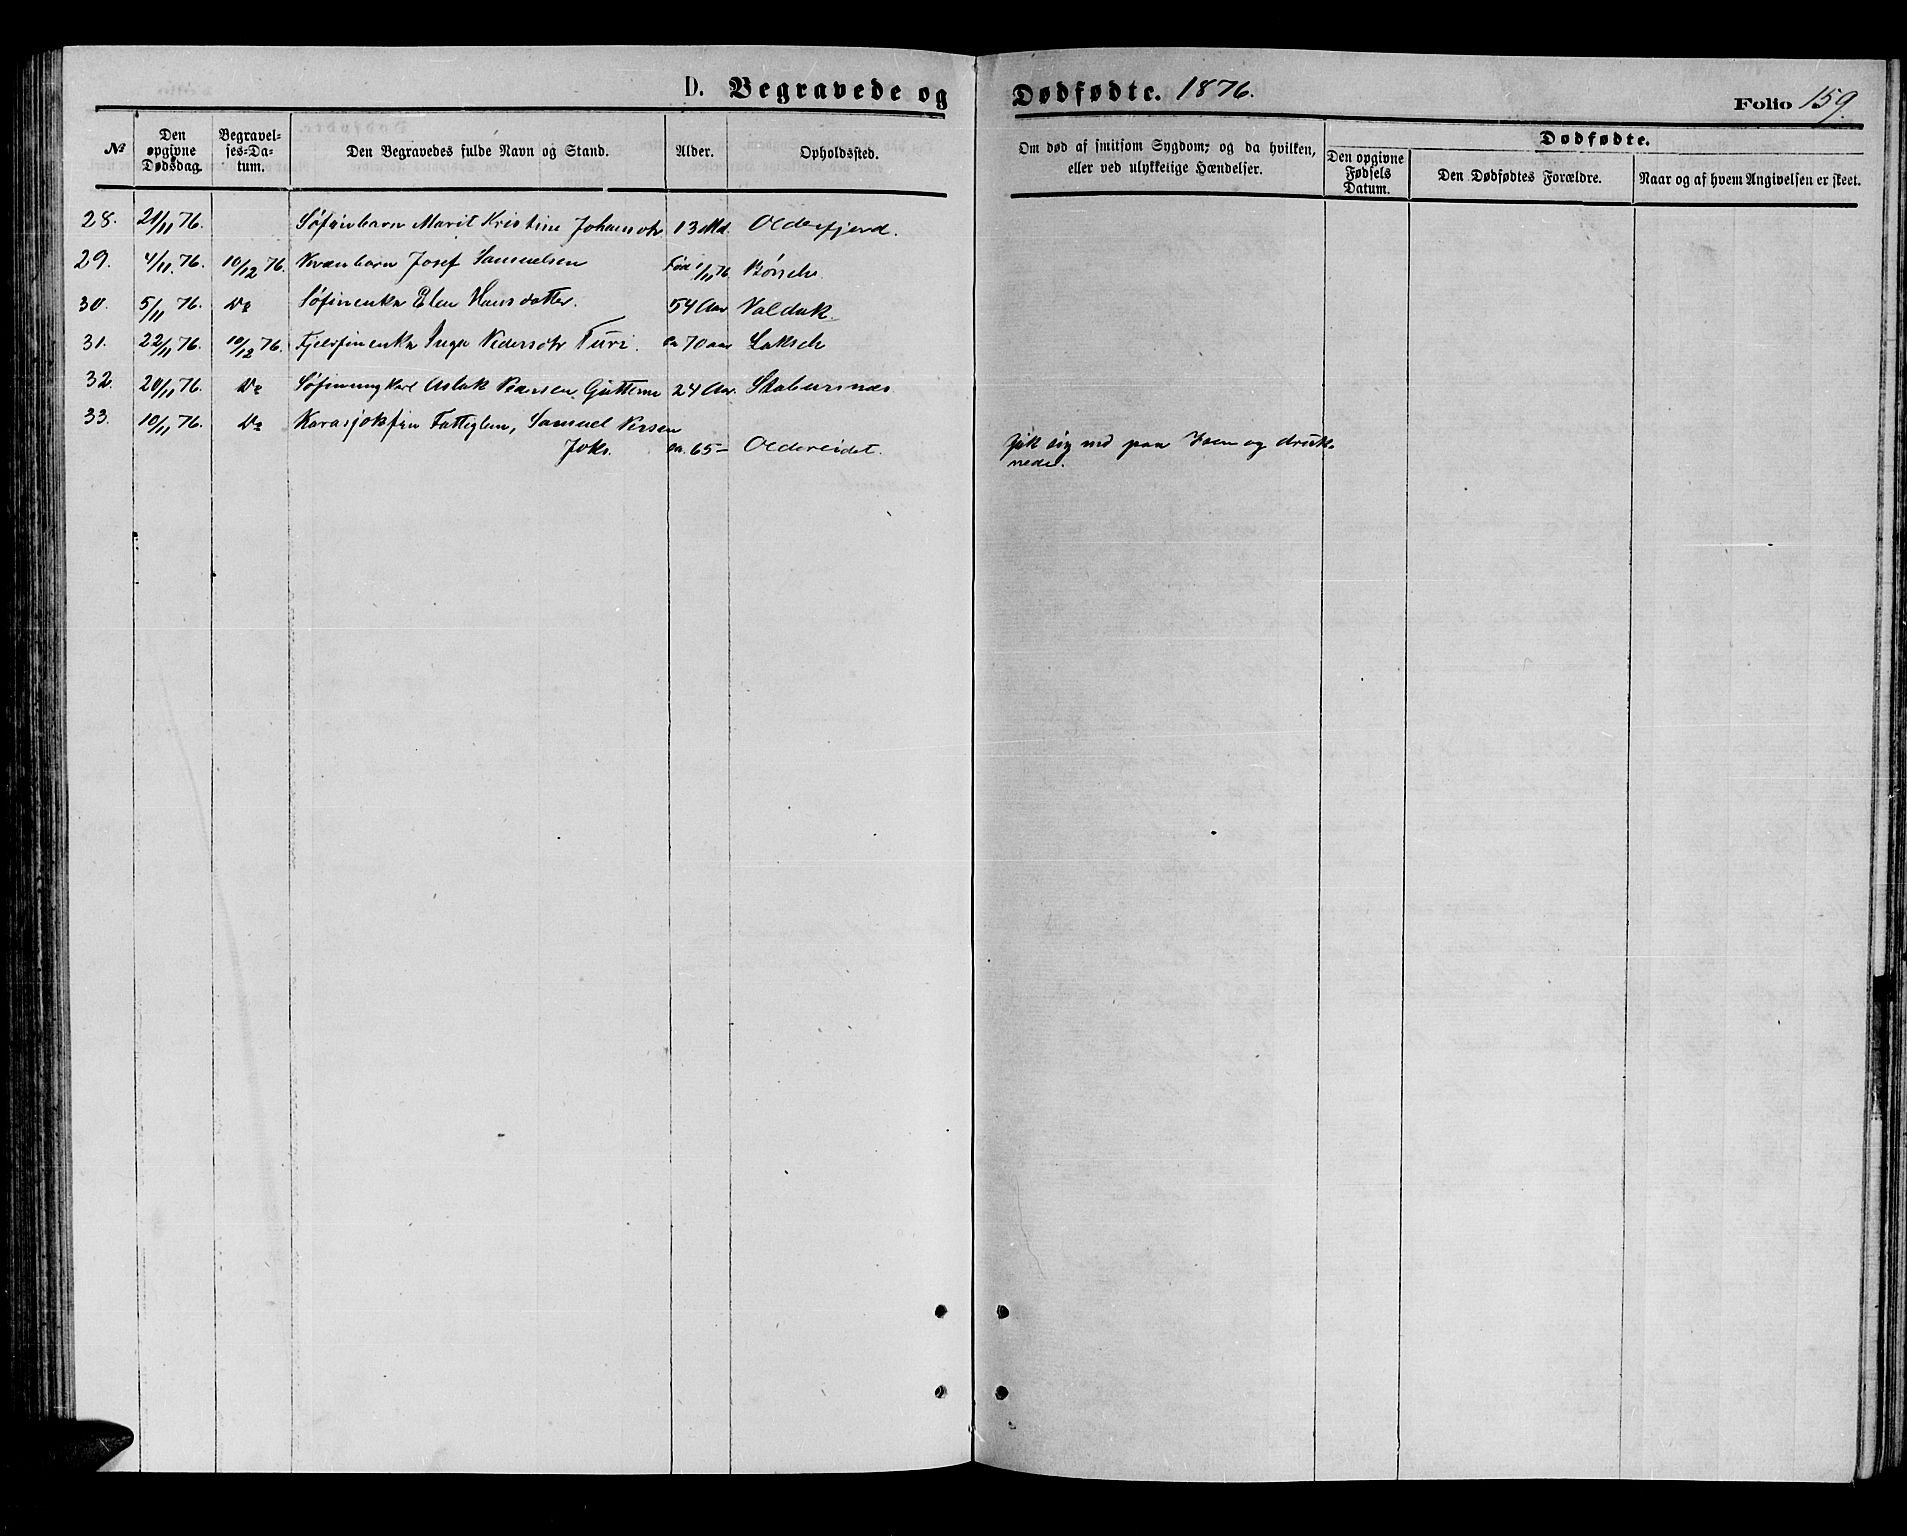 D. Begravede og Dødfødte. 1876. Folio 159.
№
Den opgivne Dødsdag.
Begravel-
ses-Da-
tum.
Den Begravedes fulde Navn og Stand.
Alder.
Opholdssted.
Om død af smitsom Sygdom; og da hvilken,
eller ved ulykkelige Hændelser.
Dødfødte.
Den opgivne
Fødsels
Datum.
Den Dødfødtes Forældre.
Naar og af hvem Angivelsen er skeet.
28. 21/11 76. Søfinbarn Marit Kristine Johansdtr 13 Md. Olderfjord.
29. 4/11. 76. 10/12 76. Kvænbarn Josef Samuelsen Født 1/11 76. Børselv.
30. 5/11 76. Do Søfinenke Elen Hansdatter. 54 Aar Valdak.
31. 22/11 76. 10/12 76. Fjeldfinenke Inga Pedersdtr Turi. ca 70 aar Lakselv
32. 20/11 76. Do Søfinungkarl Aslak Pedersen Guttorm 24 Aar. Stabursnæs
33. 10/11 76. Do Karasjokfin Fattiglem, Samuel Persen
Joks. ca. 65 – Oldereidet. gik sig ned paa Isen og druk-
nede.